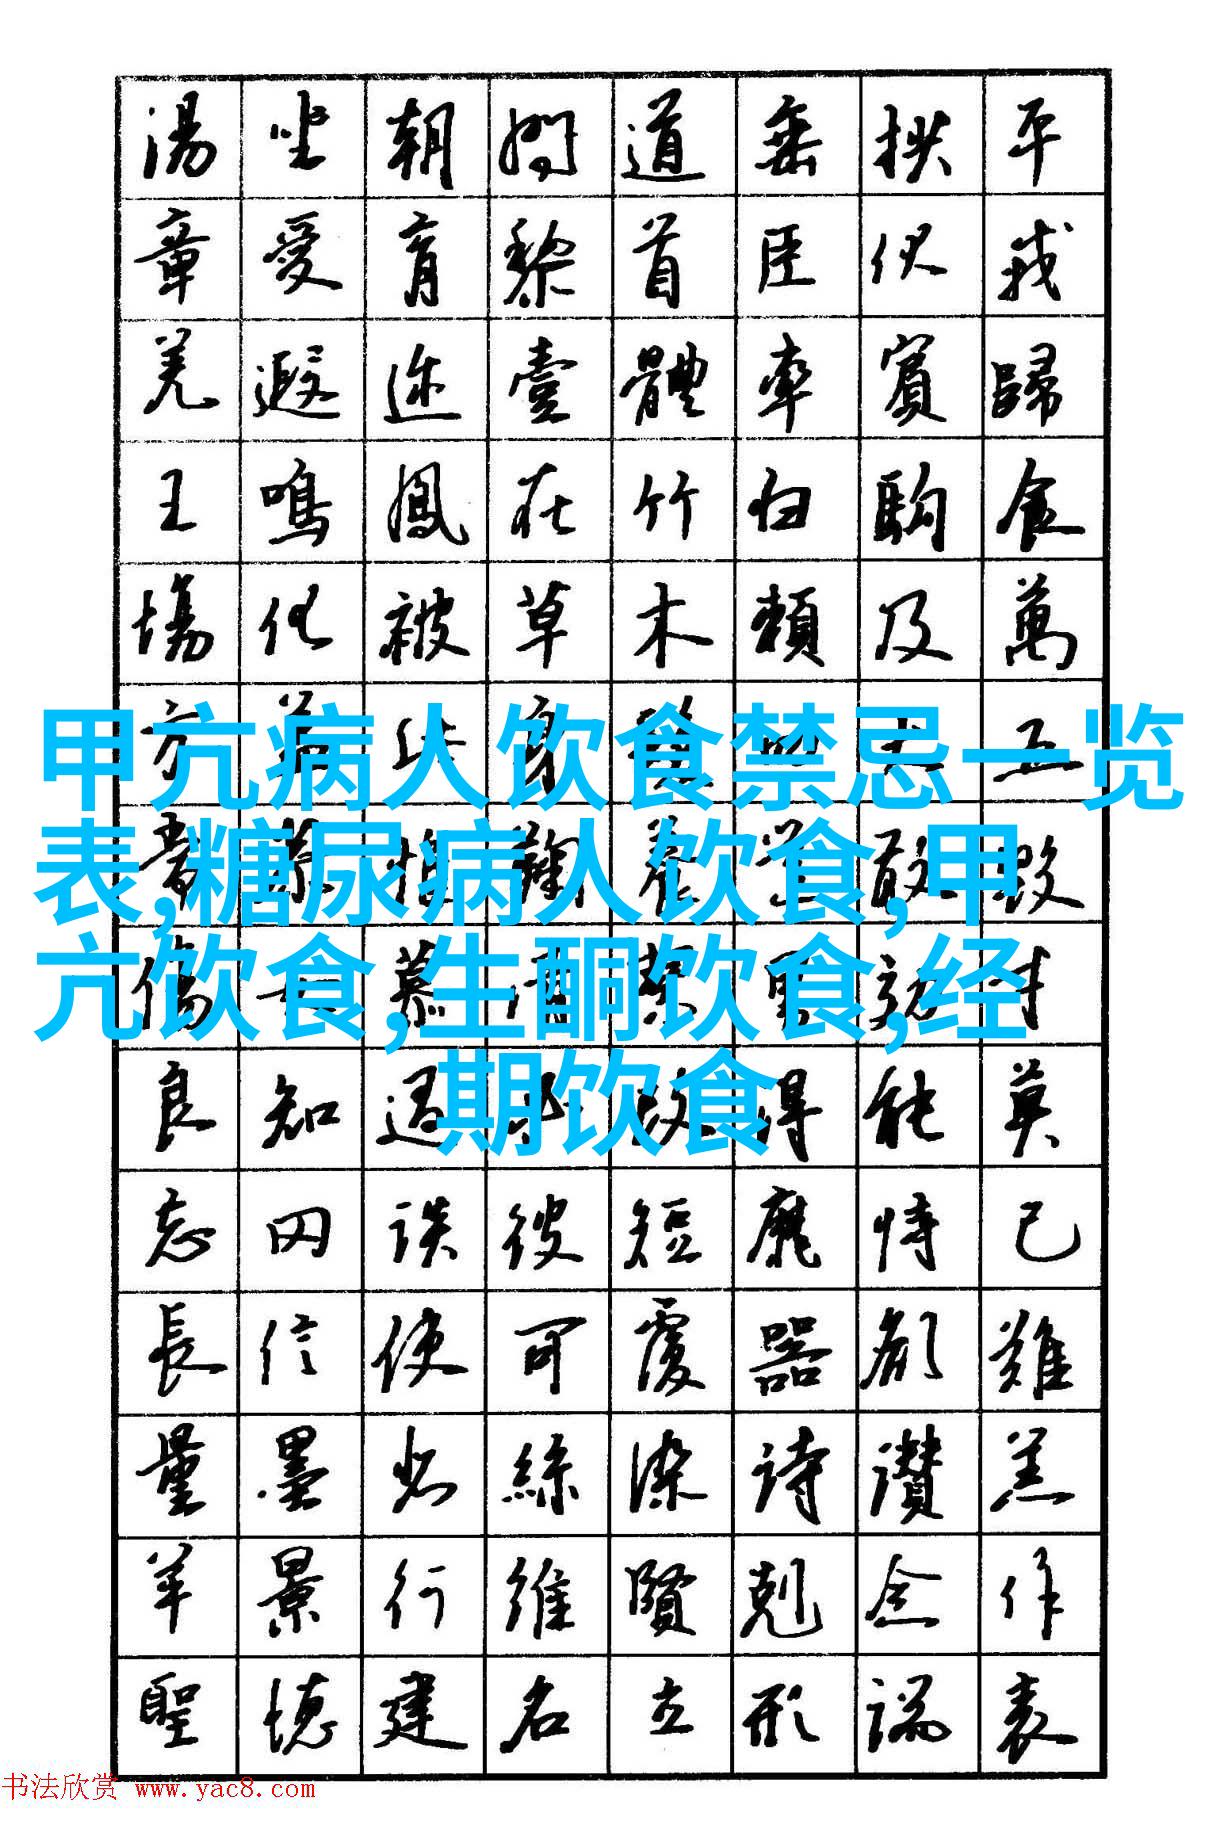 湯坐朝問道垂拱平
章愛育黎首臣伏戎
羌遐迩壹體率賓歸
王鳴鳳在竹白駒食
場化被草木賴及萬
方五
甲亢病人饮食禁忌一览
表,糖尿病人饮食,甲
亢饮食,生酮饮食,经
期饮食
良知過改得能莫
忘罔談彼短靡恃己
長信使可覆器欲難
量墨悲絲染詩讃羔
羊景行維賢剋念作
聖德建名立形端表
书法欣赏 www.yac8.com